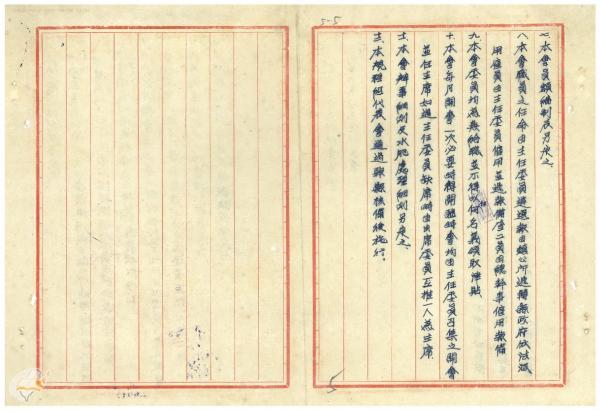 5-5
七、本會員額編制表另定之、
八、本會職員之任命由主任委員遴選報由鎮公所遞轉縣政府依法派
用雇員由主任委員僱用並遞報備查工員由總幹事僱用報備
九、本會委員均為無給職並不得以何名義領取津貼
十、本會每月開會一次必要時得開臨時會均由主任委員召集之開會
並任主席如遇主任委員缺席時由出席委員互推一人為主席
十一、本會辦事細則及水肥處理細則另定之、
十二、本規程經代表會通過報縣核備後施行。
5